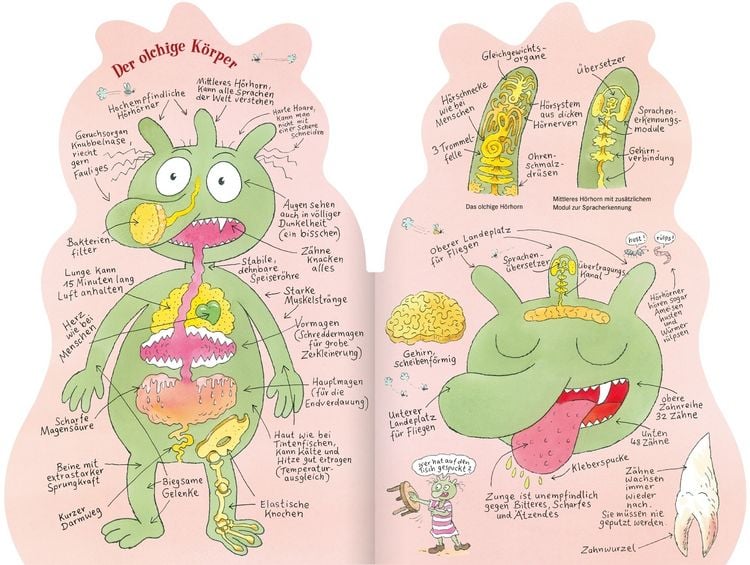 Der olchige Körper
Hochempfindliche
Hörhörner
Mittleres Hörhorn,
Kann alle Sprachen
der Welt verstehen
Harte Haare,
Kann man
nicht mit
einer Schere
schneiden
Geruchsorgan
Knubbelnase,
riecht
gern
Fauliges
Augen sehen
auch in völliger
Dunkelheit
(ein bisschen)
Bakterien-
filter
Zähne
Knacken
alles
Stabile,
dehnbare
Speiseröhre
Lunge kann
15 Minuten lang
Luft anhalten
Starke
Muskelstränge
Herz
wie bei
Menschen
Vormagen
(Schreddermagen
für grobe
Zerkleinerung)
Hauptmagen
(für die
Endverdauung)
Scharfe
Magensäure
Haut wie bei
Tintenfischen,
Kann Kälte und
Hitze gut ertragen
(Temperatur-
ausgleich)
Beine mit
extrastarker
Sprungkraft
Biegsame
Gelenke
Kurzer
Darmweg
Elastische
Knochen
Gleichgewichts-
organe
Hörschnecke
wie bei
Menschen
Hörsystem
aus dicken
Hörnerven
3 Trommel-
felle
Ohren-
schmalz-
drüsen
Das olchige Hörhorn
Übersetzer
Sprachen-
erkennungs-
module
Gehirn-
verbindung
Mittleres Hörhorn mit zusätzlichem
Modul zur Spracherkennung
Oberer Landeplatz
für Fliegen
Sprachen-
übersetzer
Übertragungs-
Kanal
hust!
rülps!
Hörhörner
hören sogar
Ameisen
husten
und
Würmer
rülpsen
Gehirn,
scheibenförmig
Unterer
Landeplatz
für Fliegen
obere
Zahnreihe
32 Zähne
Unten
48 Zähne
Kleberspucke
Wer hat auf den
Tisch gespuckt?
Zunge ist unempfindlich
gegen Bitteres, Scharfes
und Ätzendes
Zähne
wachsen
immer
wieder
nach.
Sie müssen nicht
geputzt werden.
Zahnwurzel